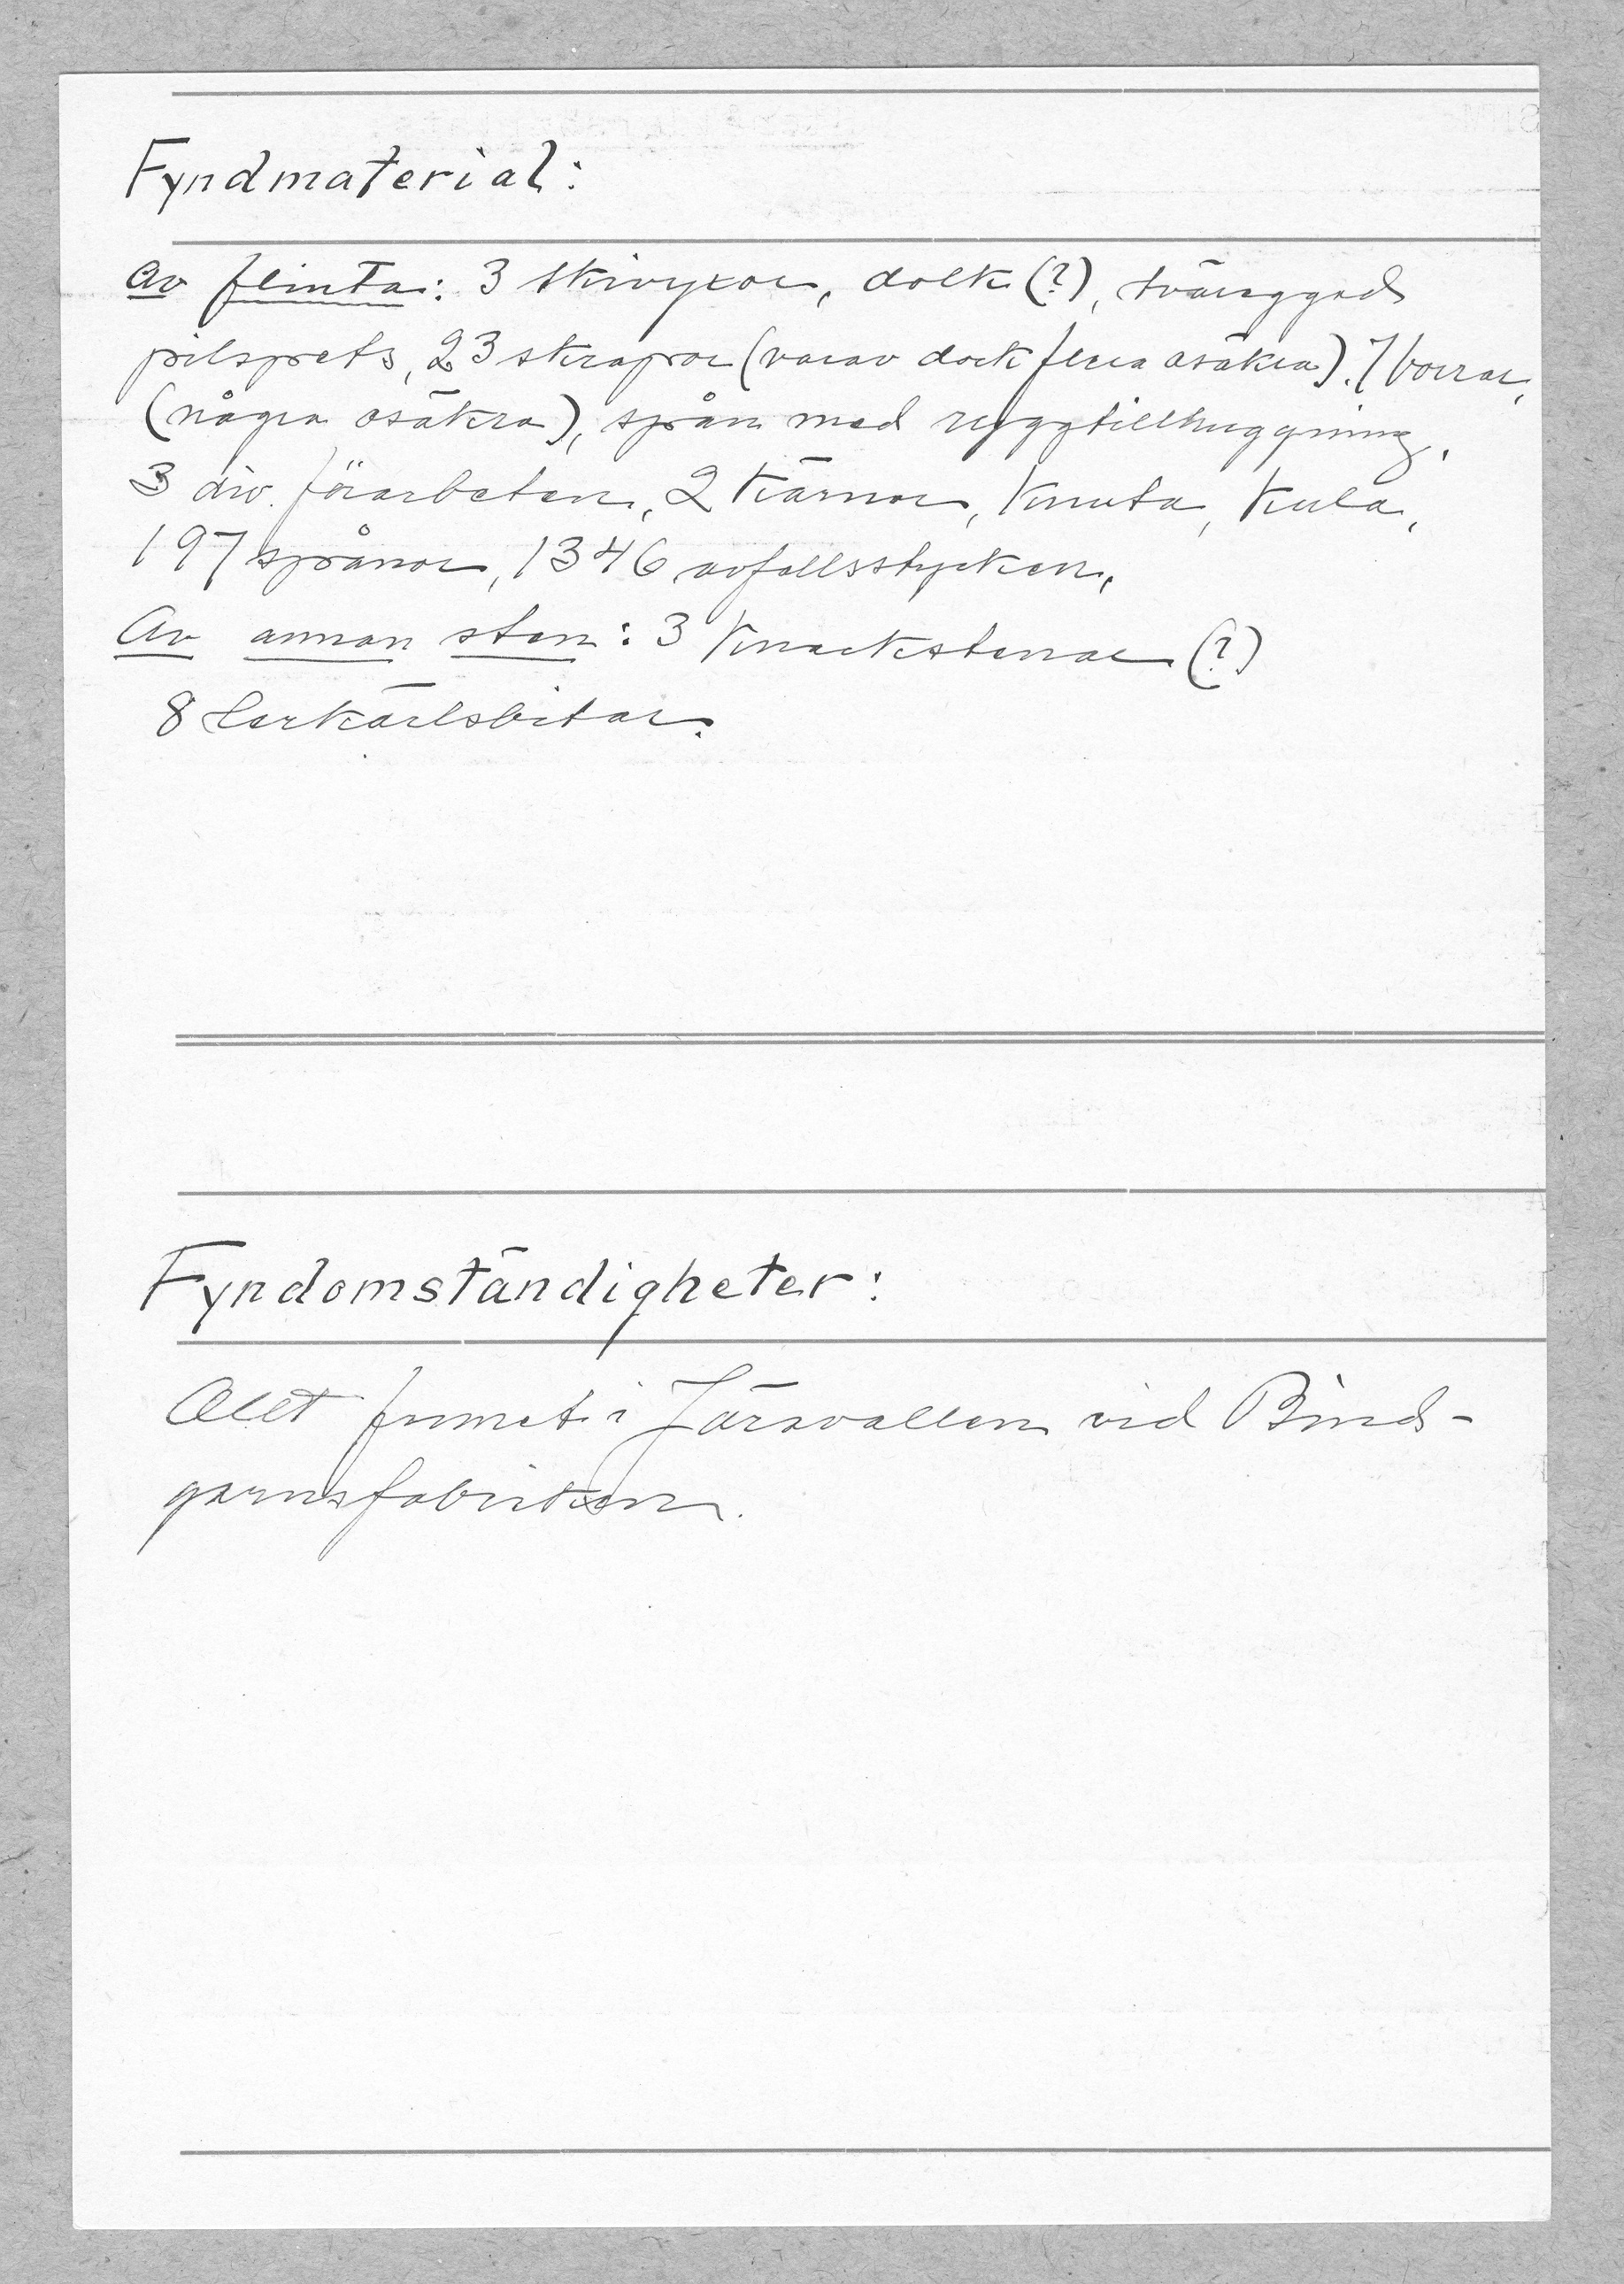 Fyndmaterial:
Av flinta: 3 skivyxor, dolk (?), tväreggad
pilspets, 23 skrapor (varav dock flera osäkra). 7 borrar,
(några osäkra), spån med ryggtillhuggning.
3 div. förarbeten, 2 kärnor, knuta, kula,
197 spånor, 1346 avfallsstycken,
Av annan sten: 3 knackstenar (?)
8 lerkärlsbitar.
Fyndomständigheter:
Allt funnet i Järavallen vid Bind-
garnsfabriken.